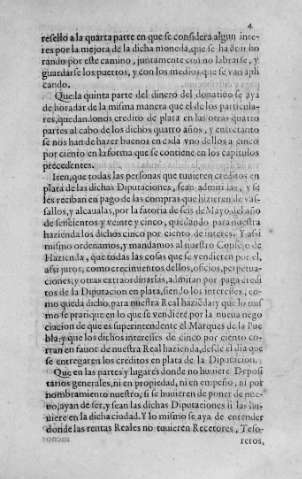 4
resello a la quarta parte en que se considera algun inte-
res por la mejora de la dicha moneda, que se ha de ir ho
rando por este camino, juntamente con no labrarse, y
guardarse los puertos, y con los medios que se van apli
cando.
Que la quinta parte del dinero del donatiuo se aya
de horadar de la misma manera que el de los particula-
res, quedandonos credito de plata en las otras quatro
partes al cabo de los dichos quatro años, y entretanto
se nos han de hazer buenos en cada vno dellos a cinco
por ciento en la forma que se contiene en los capitulos
precedentes.
Iten, que todas las personas que tuuieren creditos en
plata de las dichas Diputaciones, sean admitidas, y se
les reciban en pago de las compras que hizieren de vas-
sallos, y alcaualas, por la fatoria de seis de Mayo del año
de seiscientos y veinte y cinco, quedando para nuestra
hazienda los dichos cinco por ciento de interes. Y assi
mismo ordenamos, y mandamos al nuestro Consejo de
Hazienda, que todas las cosas que se vendieren por el,
assi juros, como crecimientos dellos, oficios, perpetua-
ciones, y otras extraordinarias, admitan por paga credi
tos de la Diputacion en plata, siendo los interesses, co-
mo queda dicho, para nuestra Real hazienda: y que lo mis
mo se pratique en lo que se vendiere por la nueua nego
ciacion de que es superintendente el Marques de la Pue
bla, y que los dichos interesses de cinco por ciento co-
rran en fauor de nuestra Real hazienda, desde el dia que
se entregaren los creditos en plata de la Diputacion.
Que en las partes y lugares donde no huuiere Deposi
tarios generales, ni en propiedad, ni en empeño, ni por
nombramiento nuestro, si se huuieren de poner de nue-
uo, ayan de ser, y sean las dichas Diputaciones si las hu-
uiere en la dicha ciudad. Y lo mismo se aya de entender
donde las rentas Reales no tuuieren Recetores, Teso-
reros,